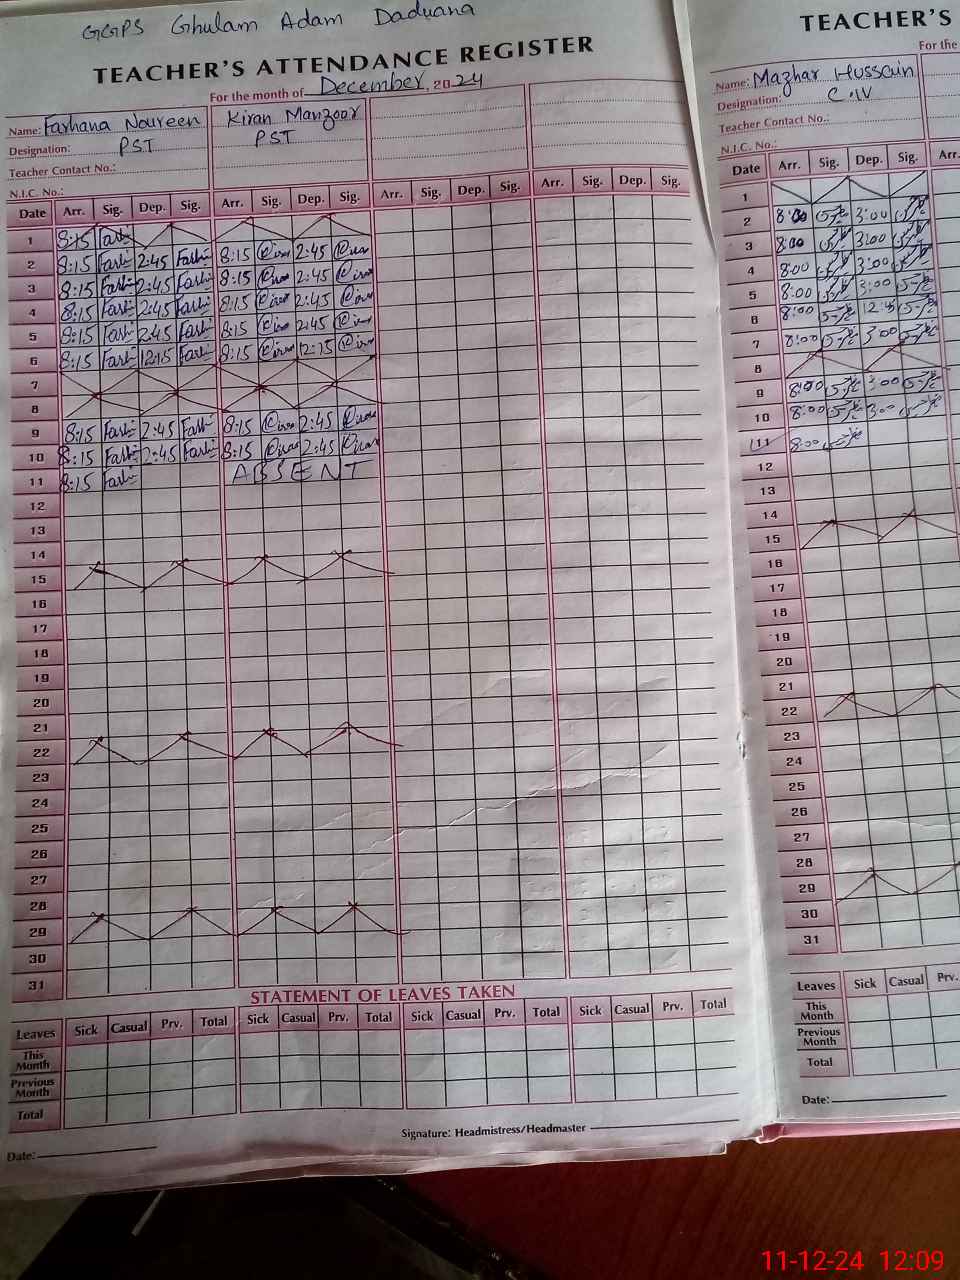 GGPS Ghulam Adam Daduana
TEACHER'S ATTENDANCE REGISTER
For the month of December, 2024
Name: Farhana Noureen Kiran Manzoor
Designation: PST PST
Teacher Contact No.:
N.I.C. No.:
Date Arr. Sig. Dep. Sig. Arr. Sig. Dep. Sig. Arr. Sig. Dep. Sig. Arr. Sig. Dep. Sig.
1 8:15
2 8:15 2:45 8:15 2:45
3 8:15 2:45 8:15 2:45
4 8:15 2:45 8:15 2:45
5 8:15 2:45 8:15 2:45
6 8:15 12:15 8:15 12:15
7
8
9 8:15 2:45 8:15 2:45
10 8:15 2:45 8:15 2:45
11 8:15 ABSENT
12
13
14
15
16
17
18
19
20
21
22
23
24
25
26
27
28
29
30
31
STATEMENT OF LEAVES TAKEN
Leaves Sick Casual Prv. Total Sick Casual Prv. Total Sick Casual Prv. Total Sick Casual Prv. Total
This Month
Previous Month
Total
Signature: Headmistress/Headmaster
Date:
TEACHER'S
For the
Name: Mazhar Hussain
Designation: C.IV
Teacher Contact No.:
N.I.C. No.:
Date Arr. Sig. Dep. Sig. Arr.
1
2 8:00 3:00
3 8:00 3:00
4 8:00 3:00
5 8:00 3:00
6 8:00
7 8:00 3:00
8
9 8:00 3:00
10 8:00 3:00
11 8:00
12
13
14
15
16
17
18
19
20
21
22
23
24
25
26
27
28
29
30
31
Leaves Sick Casual Prv.
This Month
Previous Month
Total
Date:
11-12-24 12:09